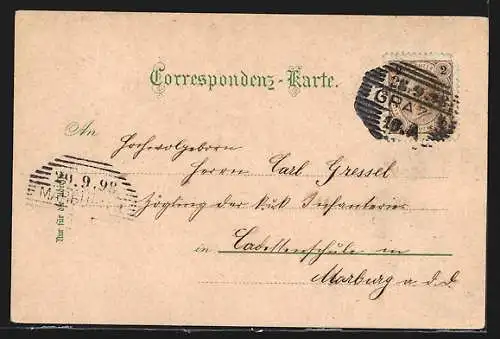 2
28.9.98
GRAZ
Correspondenz-Karte.
An
Hochwolgeboren
Herrn Carl Gressel
29.9.98
MARBURG
Zögling der k.u.k. Infanterie
Nur für die
in Cadettenschule in
Marburg a.d.d.